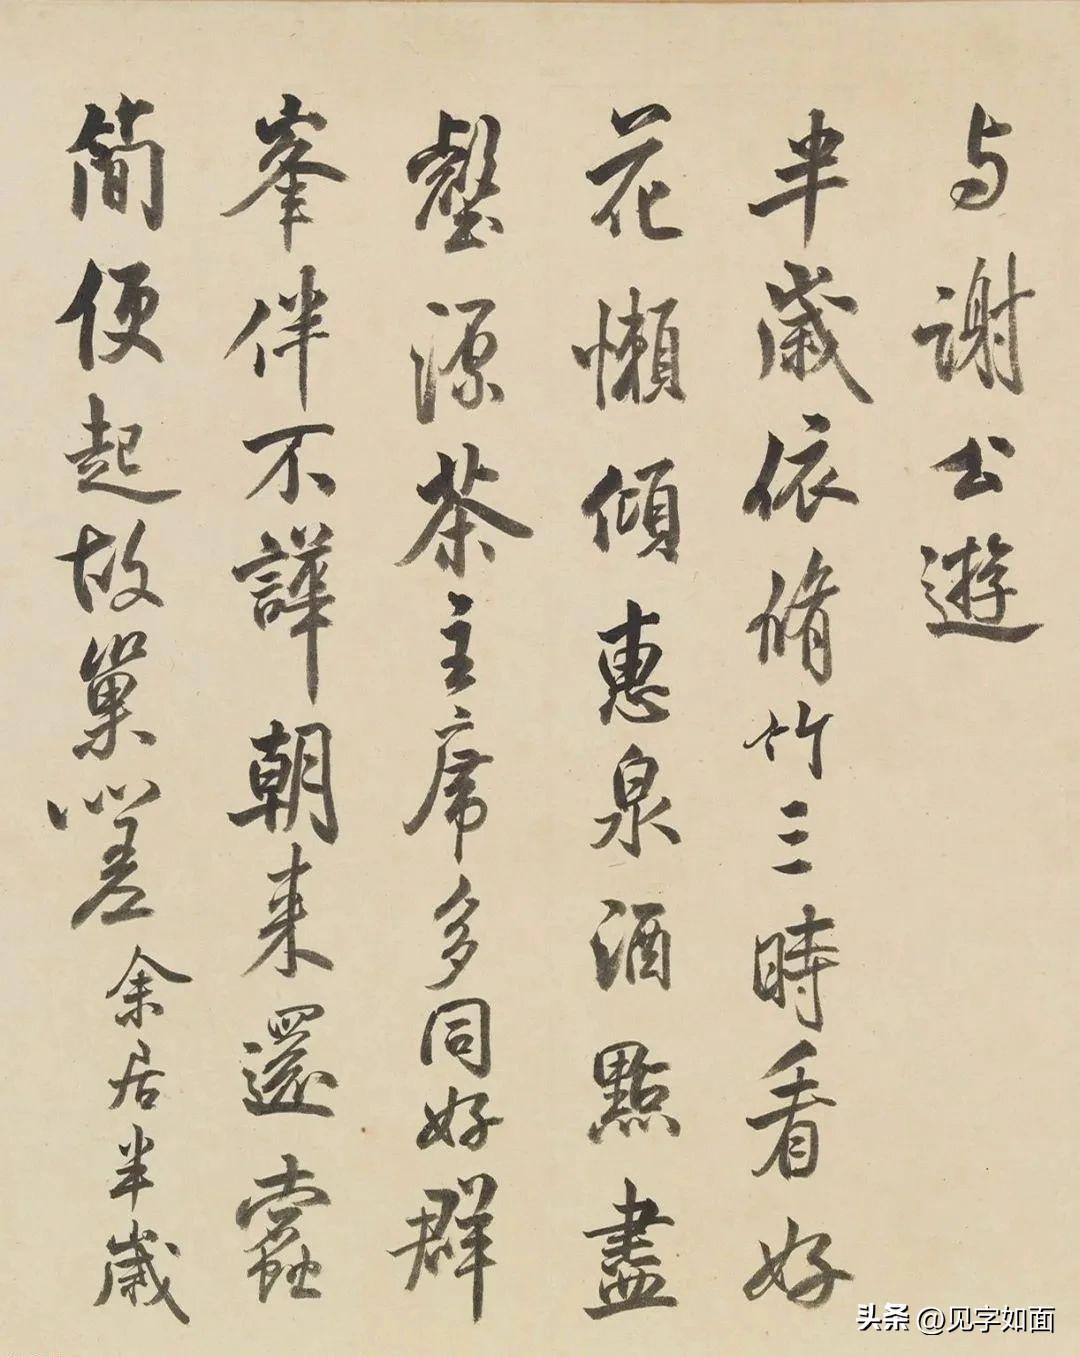 与謝公遊
半歲依脩竹三時看好
花懶傾惠泉酒點盡
壑源茶主席多同好群
峯伴不譁朝来還蠹
簡便起故巢嗟 余居半歲
头条 @见字如面